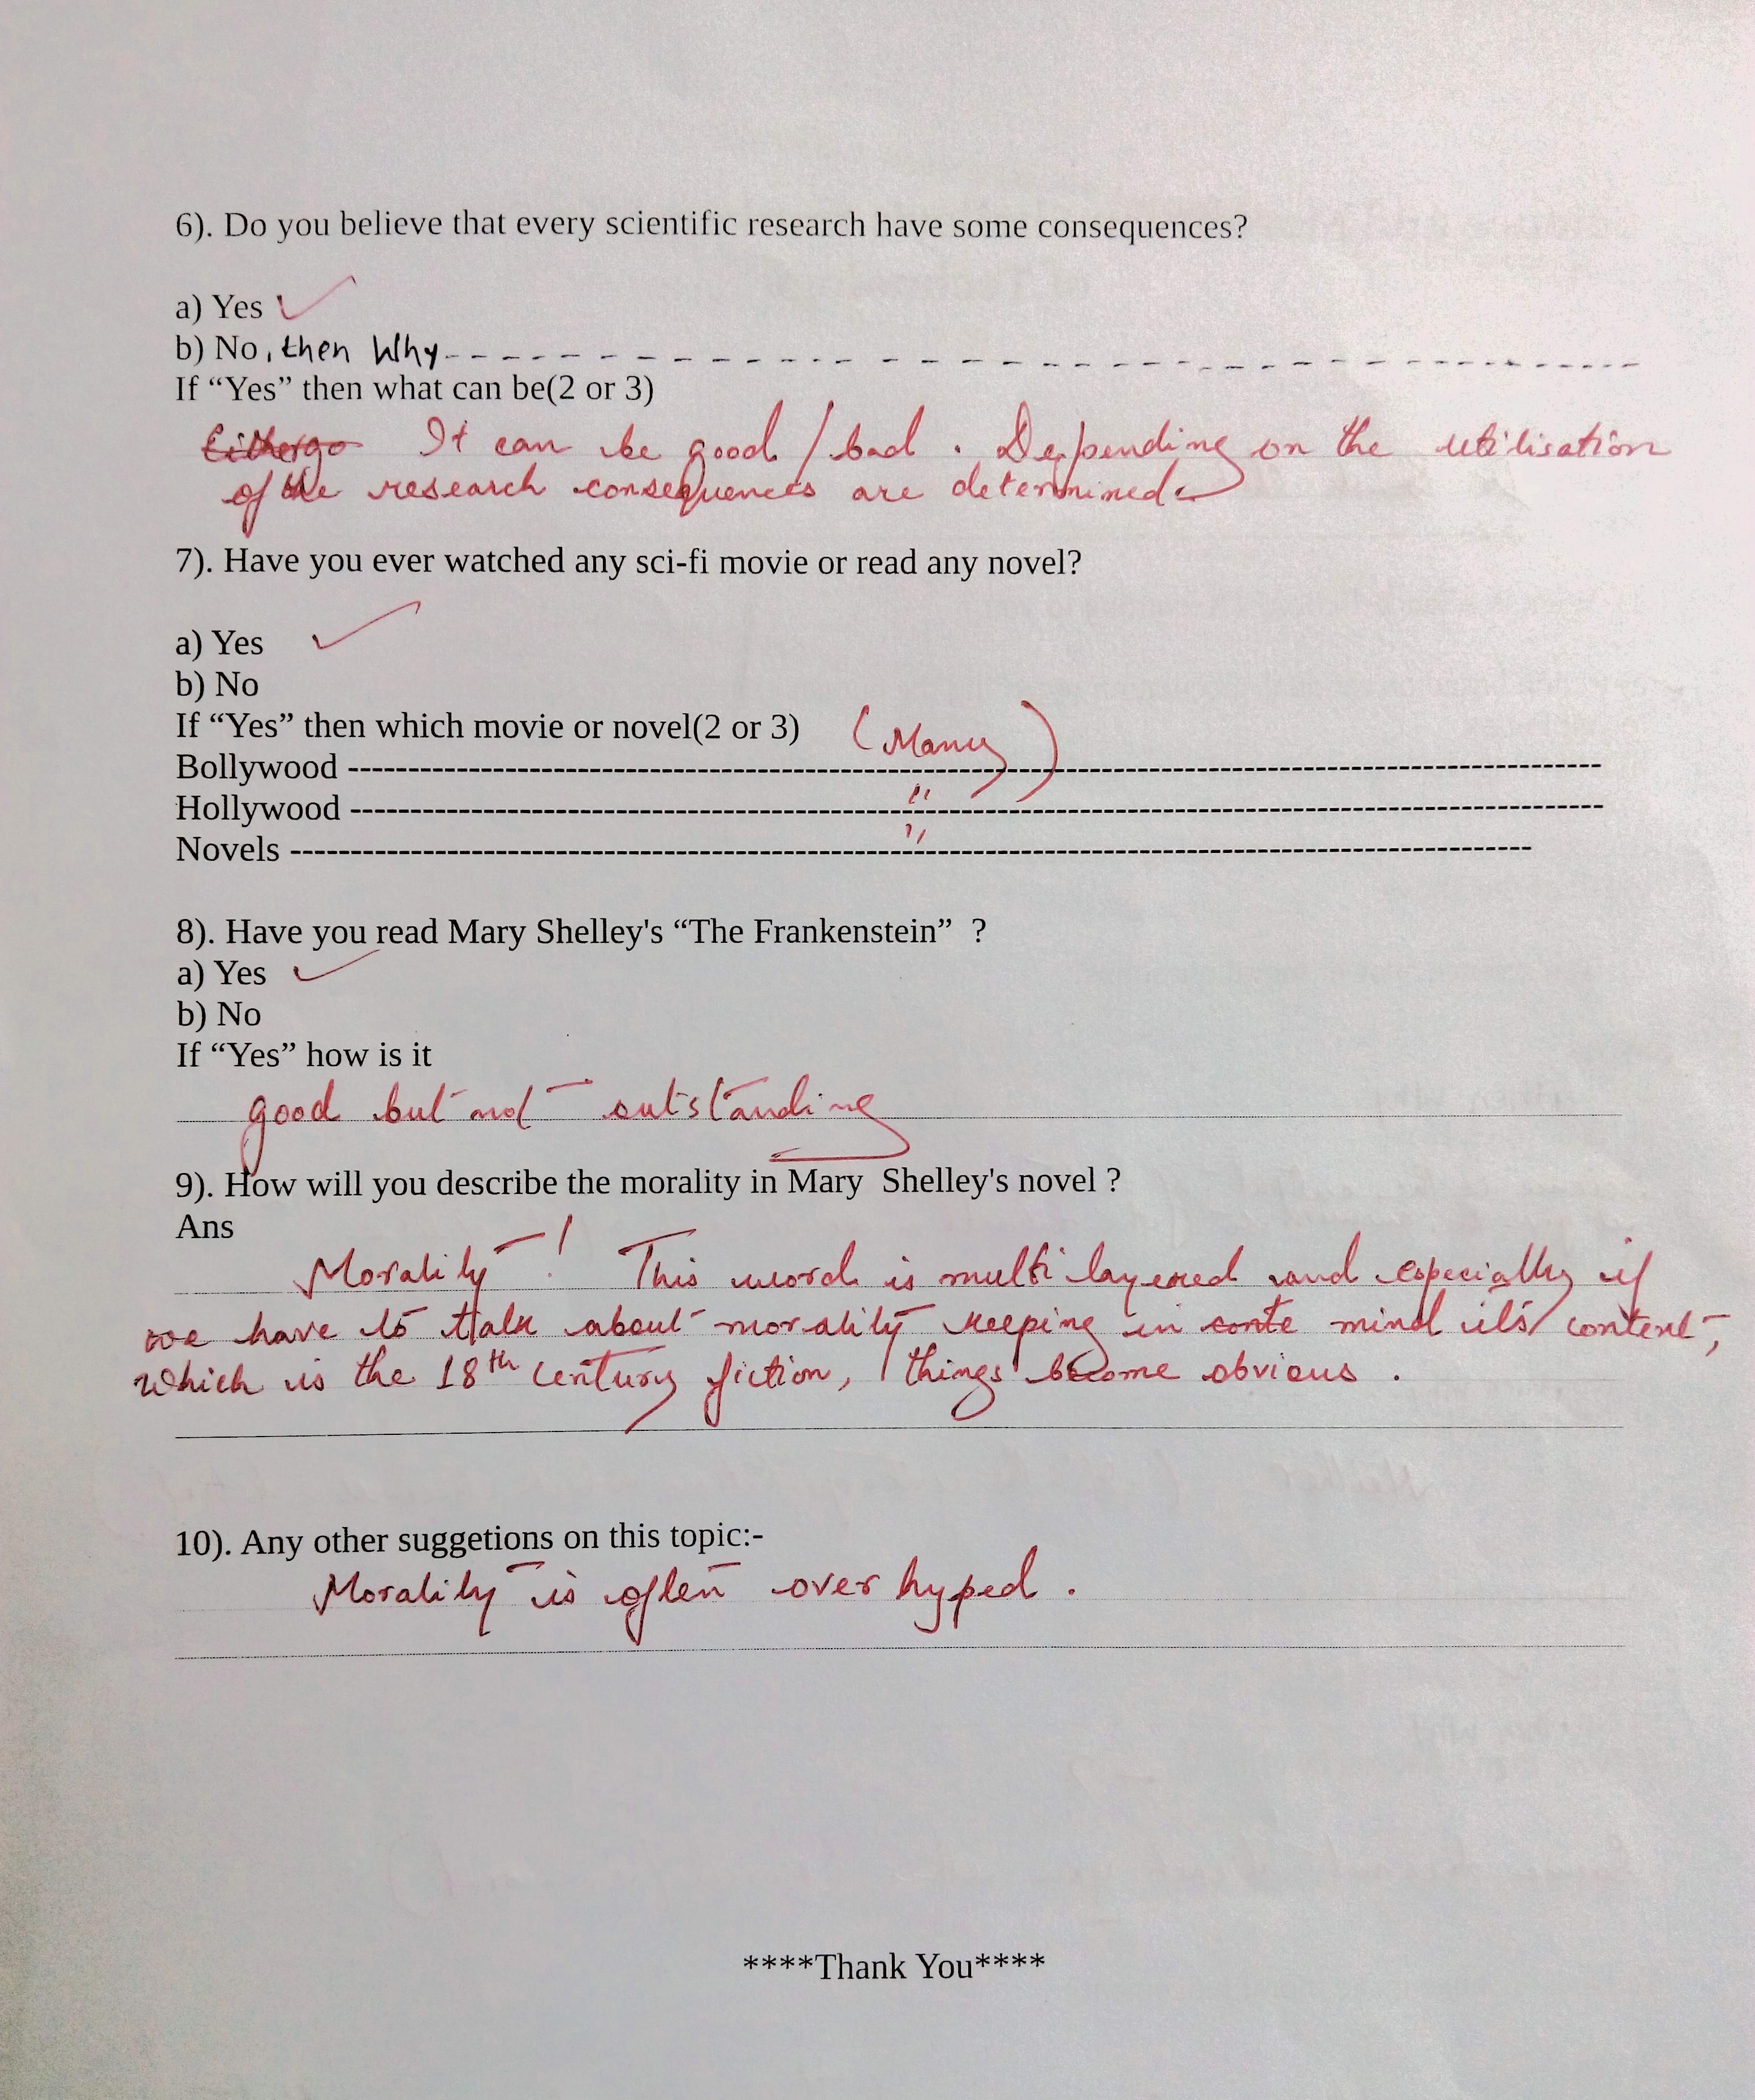 6). Do you believe that every scientific research have some consequences?
a) Yes ✓
b) No, then Why - - - - - - - - - - - - - - - - - - - -
If “Yes” then what can be(2 or 3)
It can be good / bad. Depending on the utilisation
of the research consequences are determined.
7). Have you ever watched any sci-fi movie or read any novel?
a) Yes ✓
b) No
If “Yes” then which movie or novel(2 or 3)
Bollywood -------- (Many) --------
Hollywood -------- " --------
Novels -------- " --------
8). Have you read Mary Shelley's “The Frankenstein” ?
a) Yes ✓
b) No
If “Yes” how is it
good but not outstanding
9). How will you describe the morality in Mary Shelley's novel ?
Ans
Morality ! This word is multi layered and especially if
we have to talk about morality keeping in mind its context,
which is the 18th century fiction, things become obvious.
10). Any other suggetions on this topic:-
Morality is often over hyped.
****Thank You****